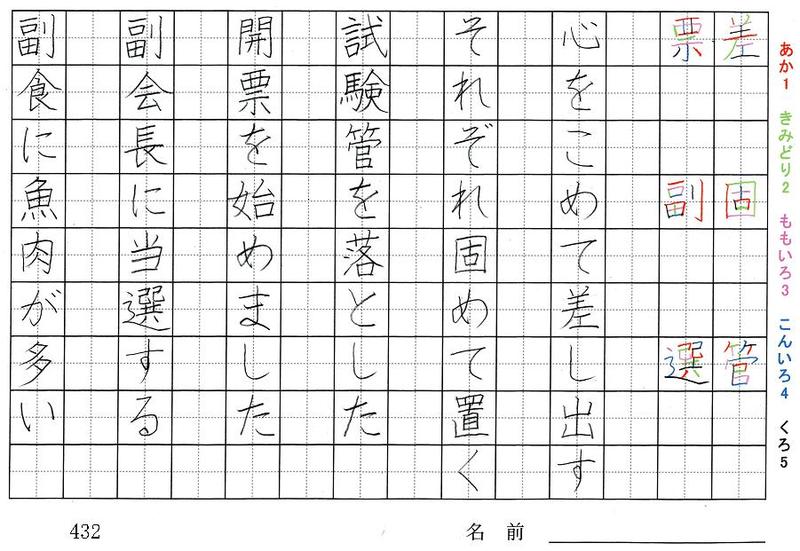 あか1 きみどり2 ももいろ3 こんいろ4 くろ5
差 固 管
票 副 選
心をこめて差し出す
それぞれ固めて置く
試験管を落とした
開票を始めました
副会長に当選する
副食に魚肉が多い
432
名前